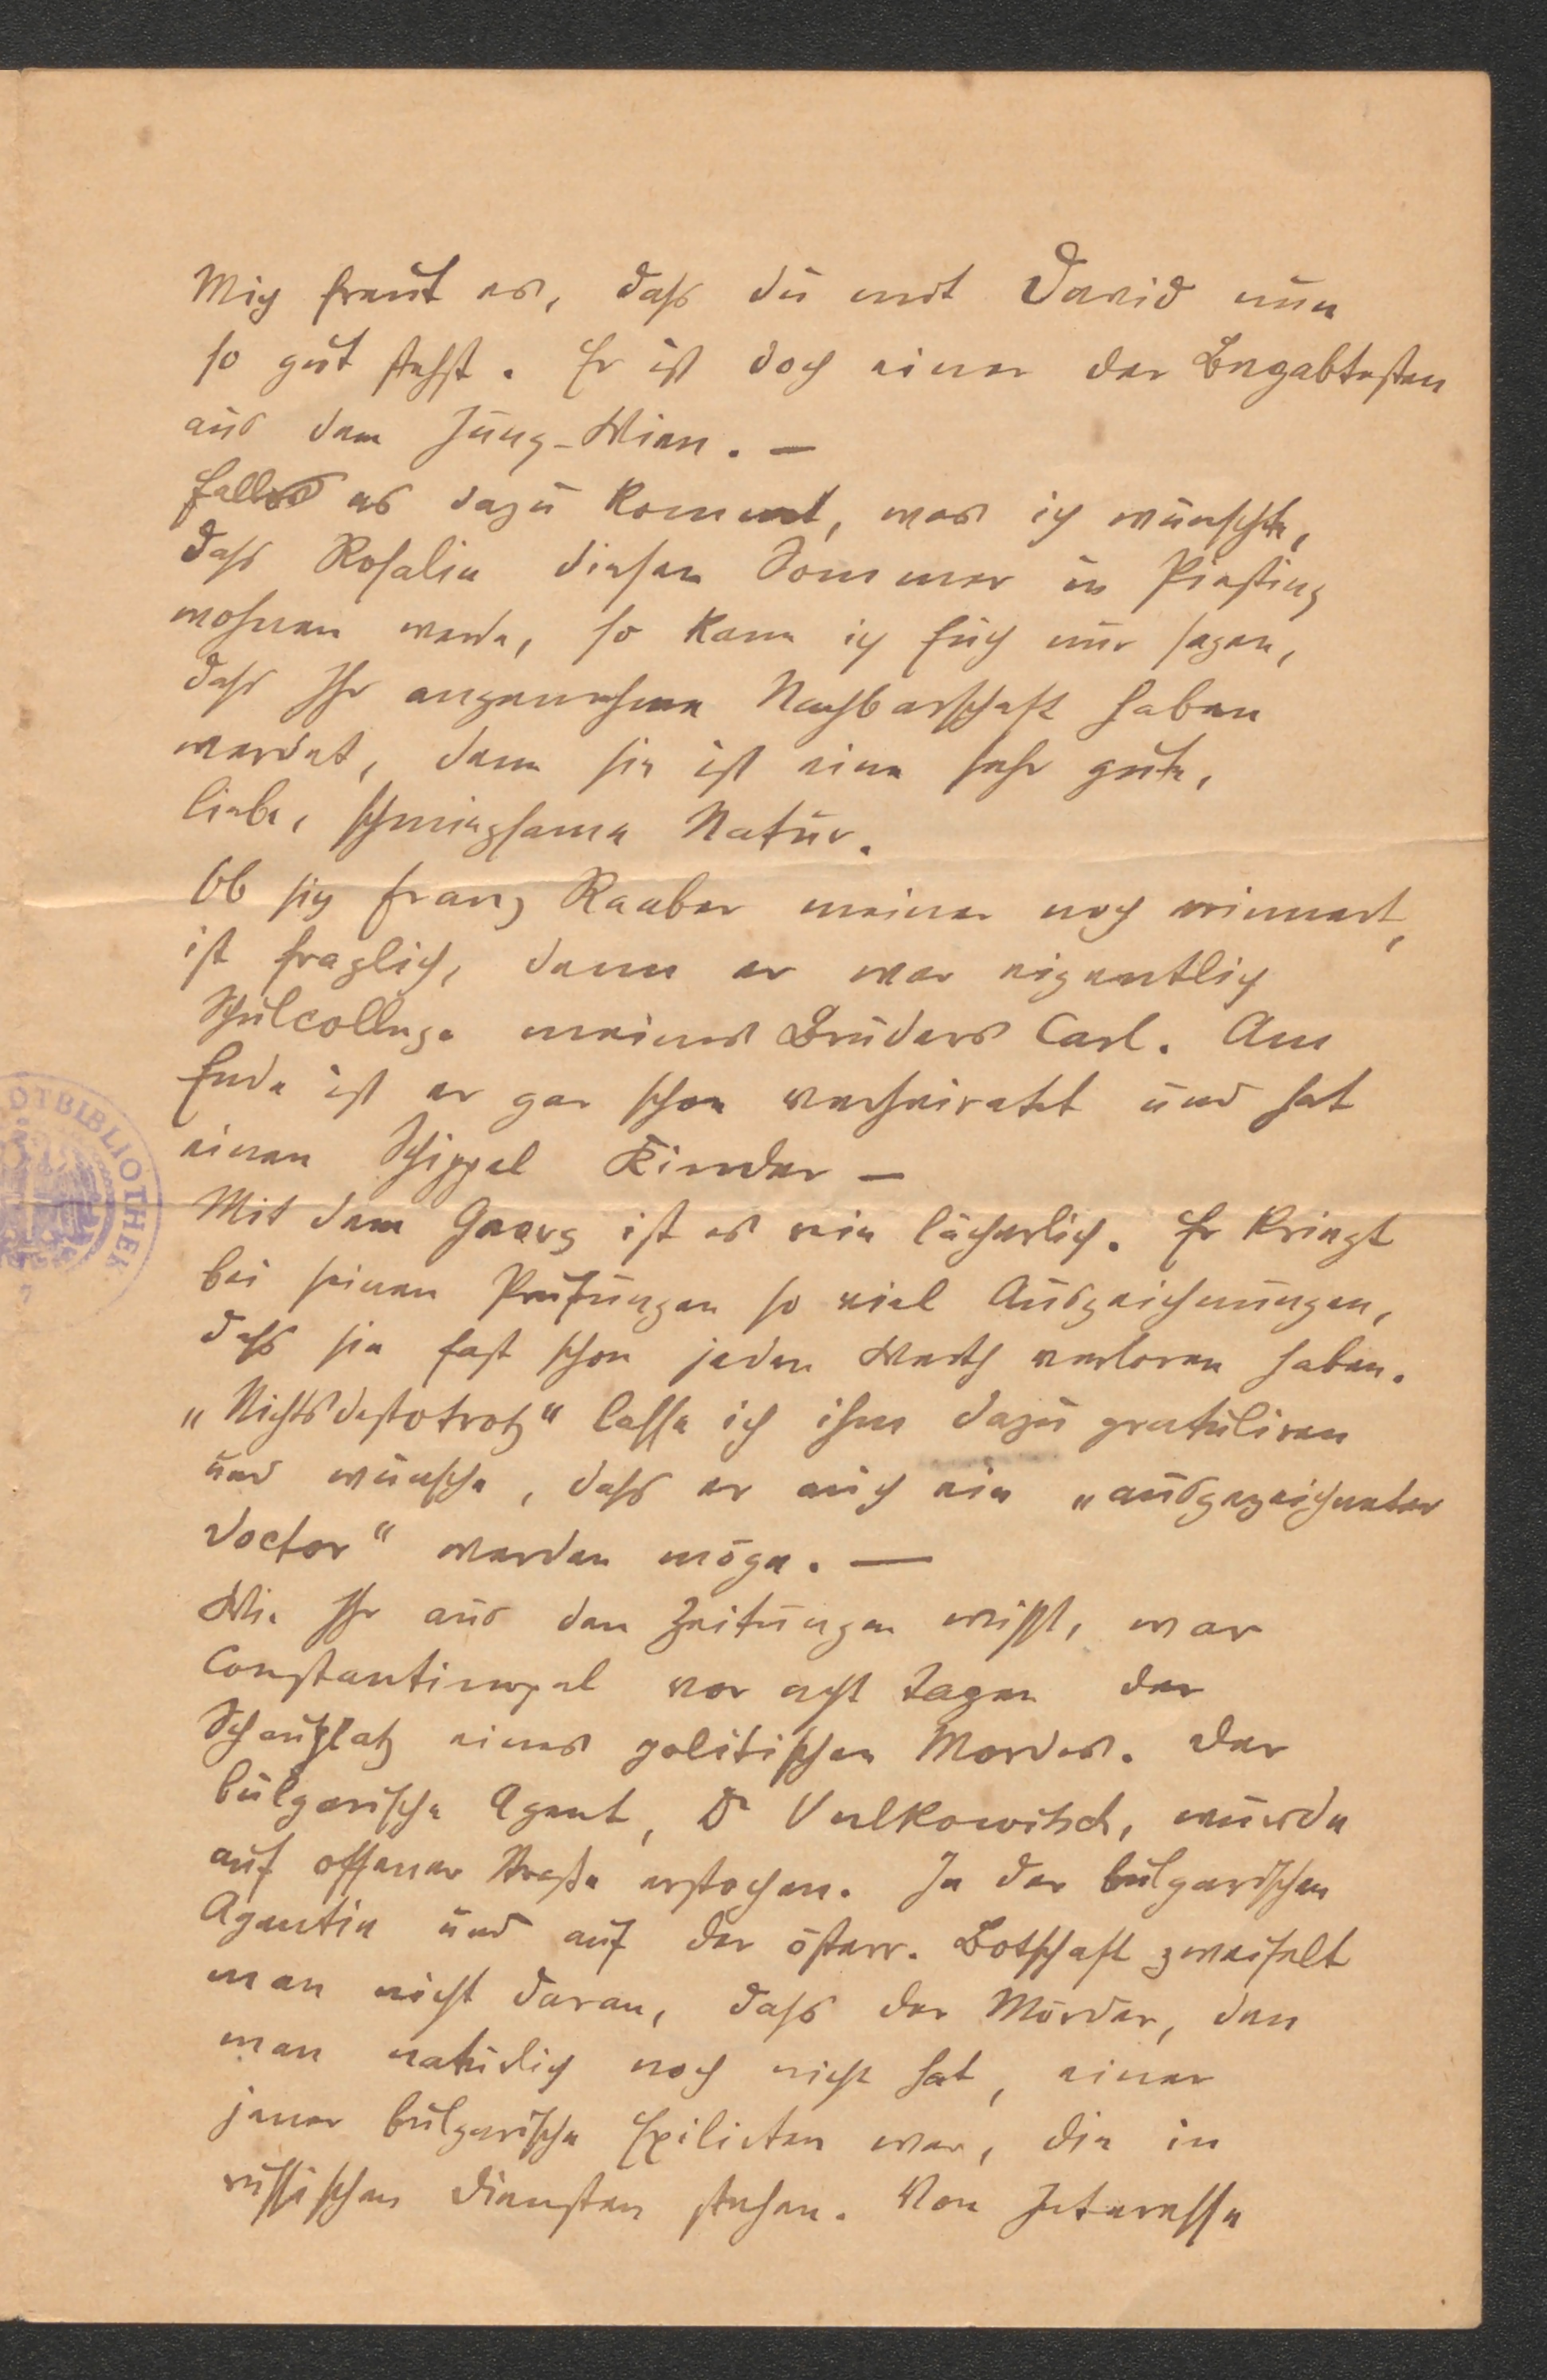 Mich freut es, daß du mit David nun
so gut stehst. Er ist doch einer der Begabtesten
aus dem Jung-Wien. —
Falls es dazu kommt, was ich wünschte,
daß Rosalie diesen Sommer in Piesting
wohnen werde, so kann ich Euch nur sagen,
daß Ihr angenehme Nachbarschaft haben
werdet, denn sie ist eine sehr gute,
liebe, schmiegsame Natur.
Ob sich Franz Raaber meiner noch erinnert,
ist fraglich, denn er war eigentlich
Schulcollege meines Bruders Carl. Am
Ende ist er gar schon verheiratet und hat
einen Schippel Kinder —
Mit dem Georg ist es rein lächerlich. Er kriegt
bei seinen Prüfungen so viel Auszeichnungen,
daß sie fast schon jeden Werth verloren haben.
„Nichtsdestotrotz“ lasse ich ihm dazu gratuliren
und wünsche, daß er auch ein „ausgezeichneter
Doctor“ werden möge. —
Wie Ihr aus den Zeitungen wißt, war
Constantinopel vor acht Tagen der
Schauplatz eines politischen Mordes. Der
bulgarische Agent, Dr Vulkowitsch, wurde
auf offener Straße erstochen. In der bulgarischen
Agentie und auf der österr. Botschaft zweifelt
man nicht daran, daß der Mörder, den
man natürlich noch nicht hat, einer
jener bulgarische Exilirten war, die in
russischen Diensten stehen. Von Interesse
OTBIBLIOTHEK